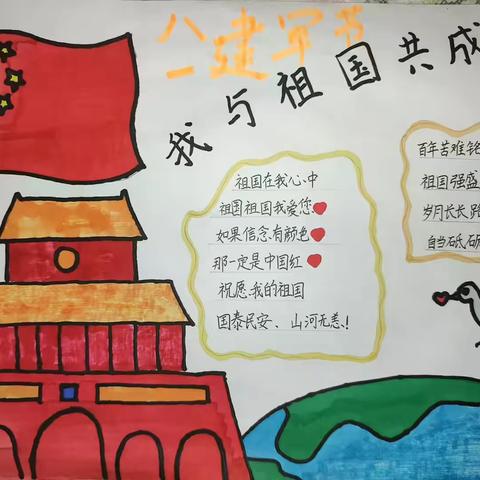 八一建军节
我与祖国共成
祖国在我心中
祖国祖国我爱您
如果信念有颜色
那一定是中国红
祝愿我的祖国
国泰民安、山河无恙!
百年苦难铭
祖国强盛
岁月长长,路
自当砥砺